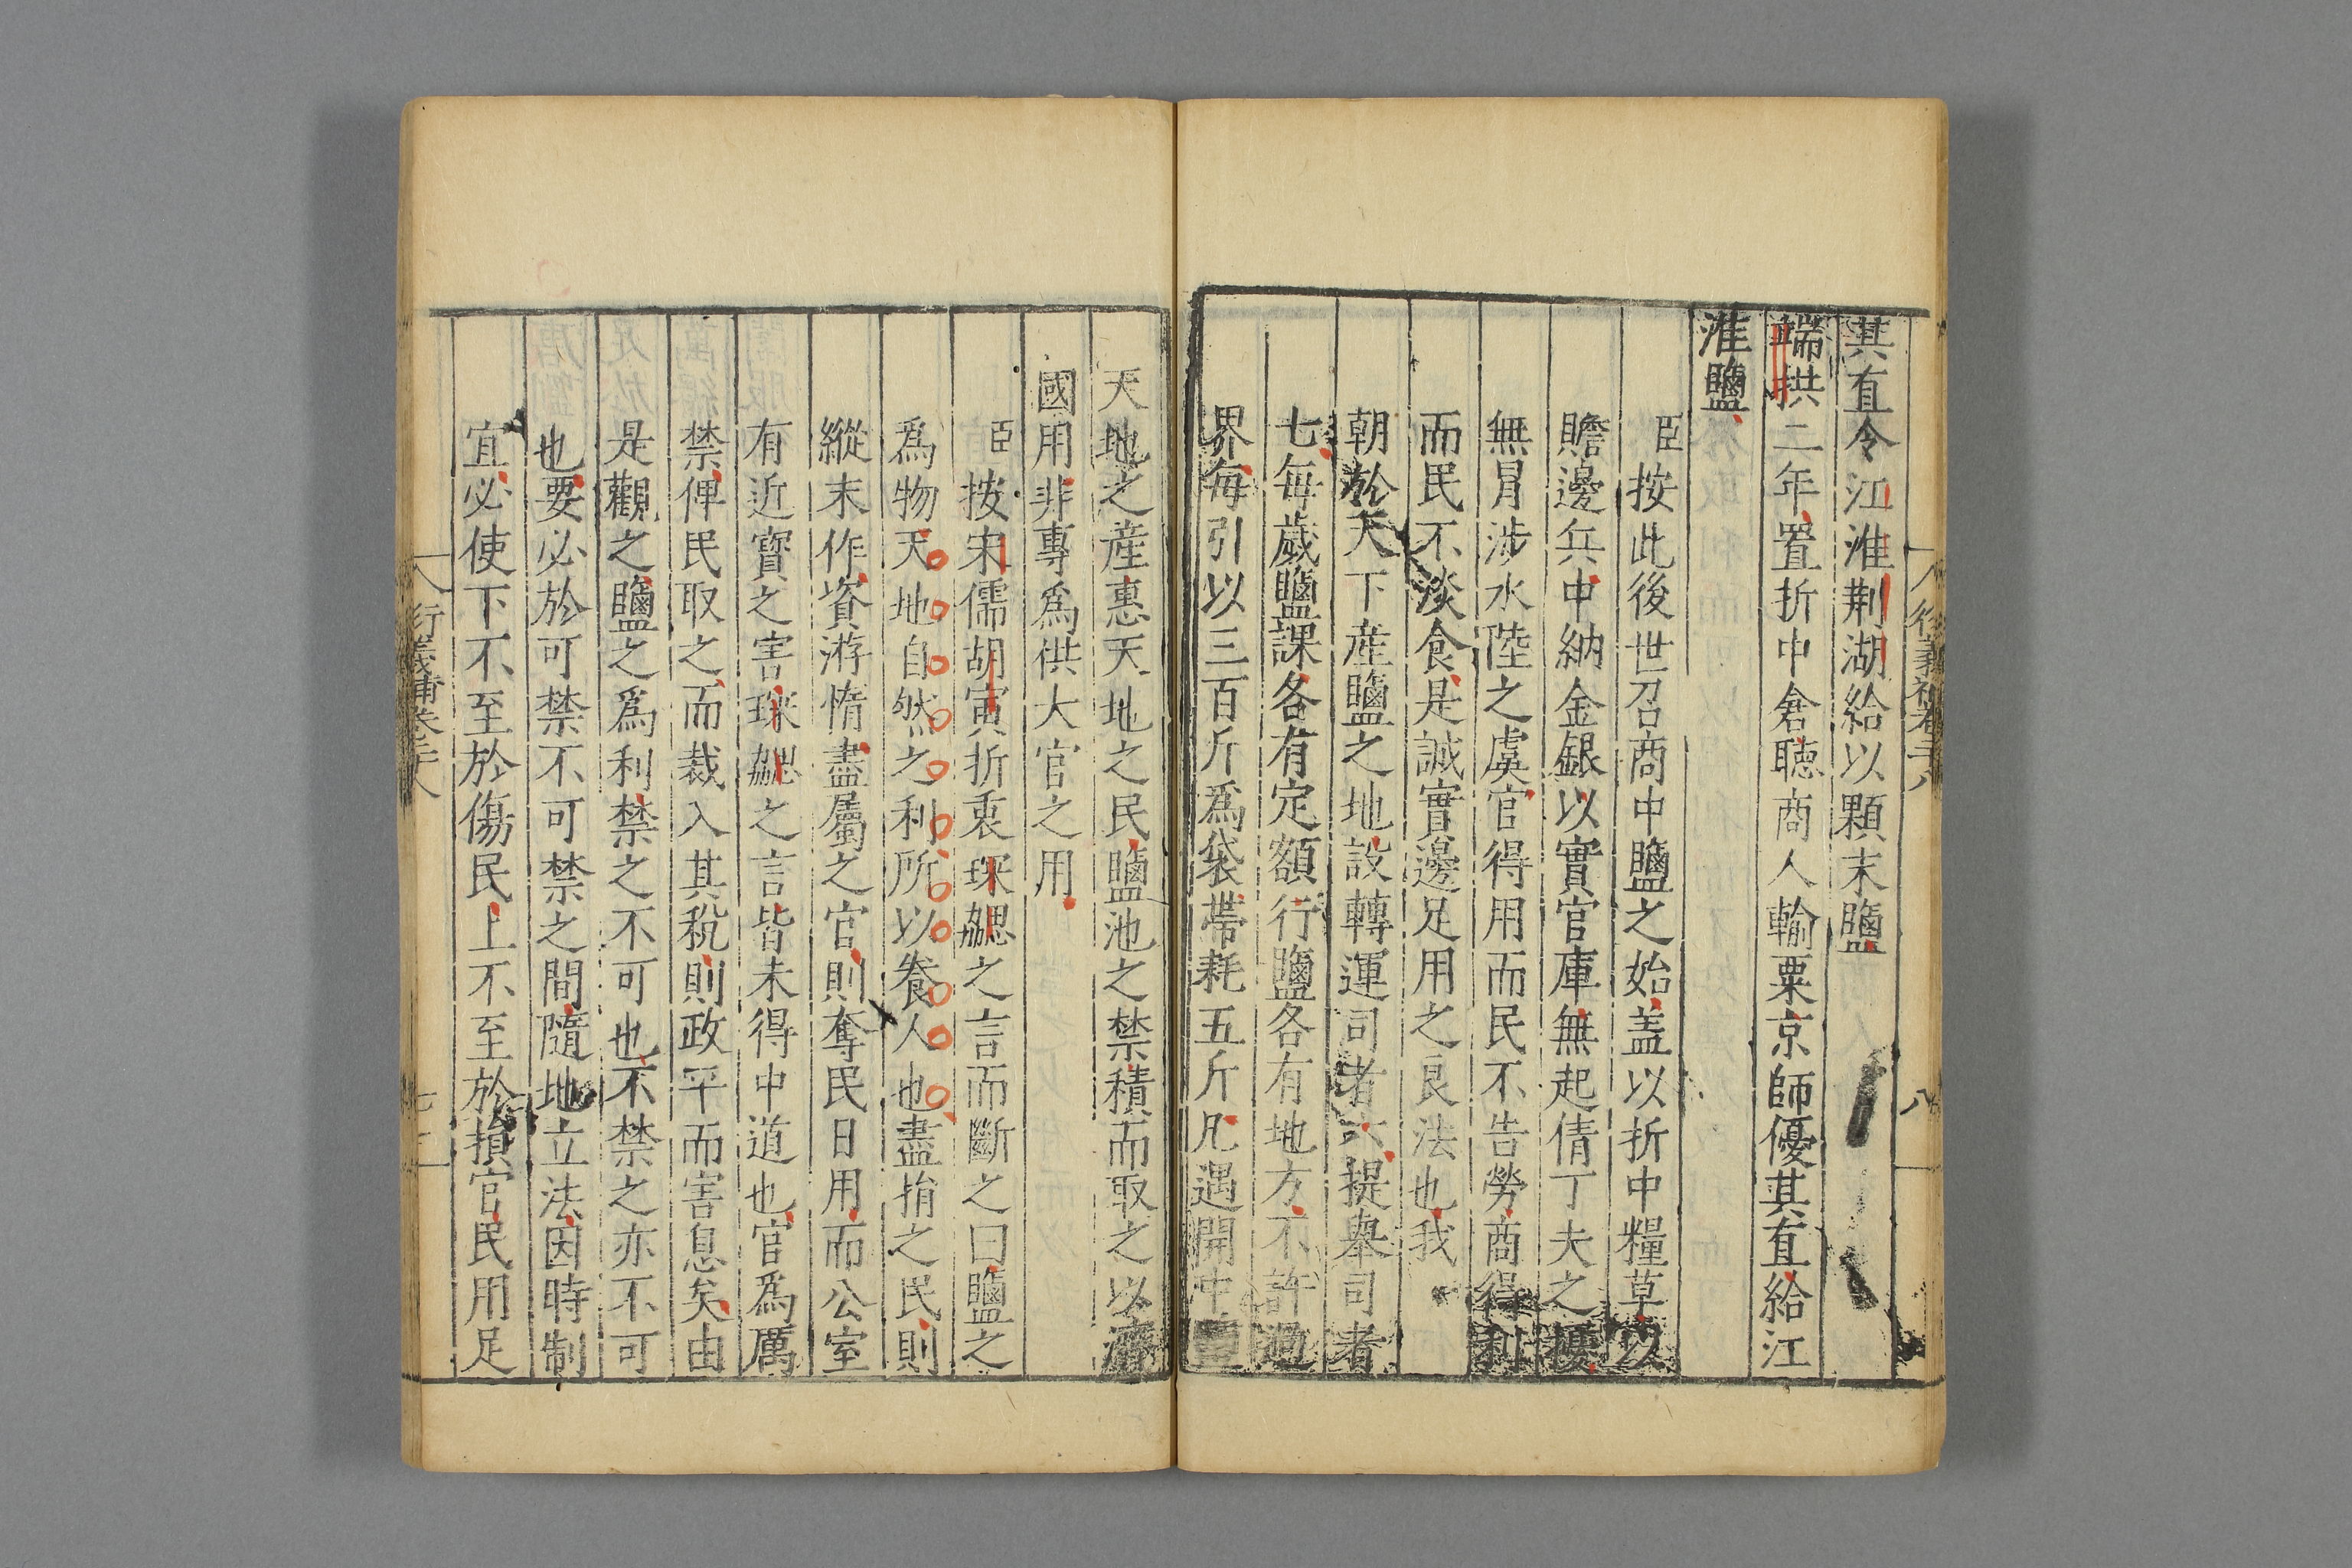 衍義補卷二十八
八
其直令江淮荆湖給以顆末鹽
端拱二年置折中倉聽商人輸粟京師優其直給江
淮鹽
臣按此後世召商中鹽之始盖以折中糧草以
贍邊兵中納金銀以實官庫無起倩丁夫之擾
無冐涉水陸之虞官得用而民不告勞商得利
而民不淡食是誠實邊足用之良法也我
朝於天下産鹽之地設轉運司者六提舉司者
七每歲鹽課各有定額行鹽各有地方不許過
界每引以三百斤爲袋帶耗五斤凡遇開中
天地之産惠天地之民鹽池之禁積而取之以濟
國用非專爲供大官之用
臣按宋儒胡寅折衷琛勰之言而斷之曰鹽之
爲物天地自然之利所以養人也盡捐之民則
縱末作資游惰盡屬之官則奪民日用而公室
有近寳之害琛勰之言皆未得中道也官爲厲
禁俾民取之而裁入其稅則政平而害息矣由
是觀之鹽之爲利禁之不可也不禁之亦不可
也要必於可禁不可禁之間隨地立法因時制
宜必使下不至於傷民上不至於損官民用足
衍義補卷二十八